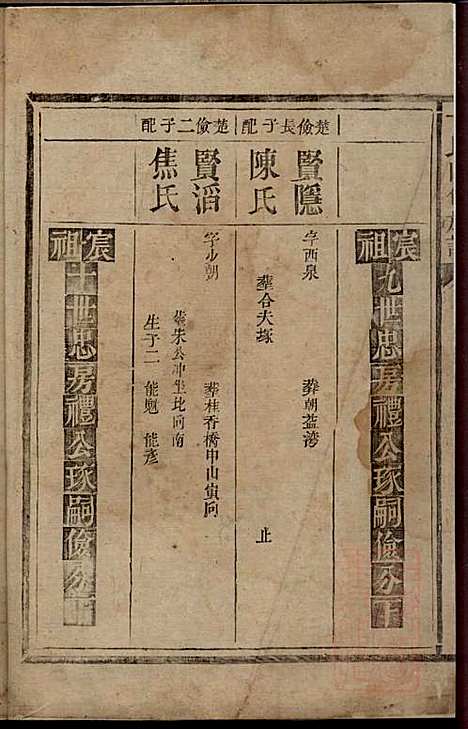 宸祖九世忠房禮公琢嗣儉公下
楚儉長子配
賢隱
陳氏
字西泉 葬朝益湾
葬合夫塚 止
楚儉二子配
賢滔
焦氏
字少朝 葬桂香橋申山寅向
葬朱公冲坐北向南
生子二 能魁 能彦
宸祖十世忠房禮公琢嗣儉公下